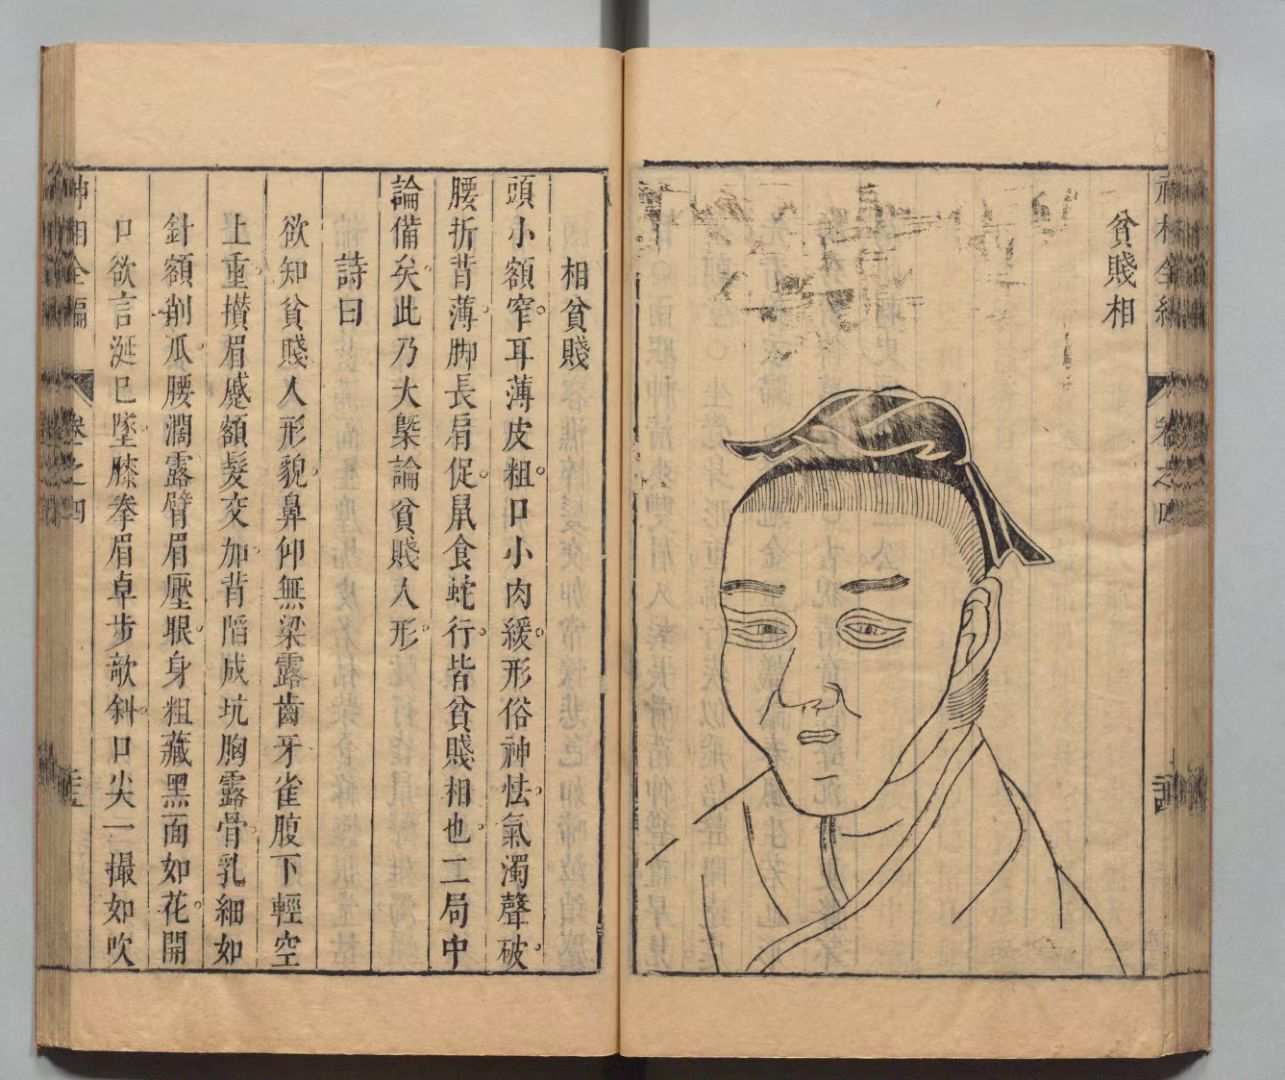 神相全編 卷之四
貧賤相
相貧賤
頭小額窄。耳薄皮粗。口小肉緩。形俗神怯。氣濁聲破。
腰折背薄。脚長肩促。鼠食蛇行。皆貧賤相也。二局中
論備矣。此乃大槩論貧賤人形。
詩曰
欲知貧賤人形貌。鼻仰無梁露齒牙雀腹下輕空
上重。攅眉蹙額髮交加。背陷成坑胸露骨。乳細如
針額削瓜。腰濶露臂眉壓眼。身粗藏黑面如花。開
口欲言涎已墜。膝拳眉卓步欹斜。口尖一撮如吹
神相全編 卷之四